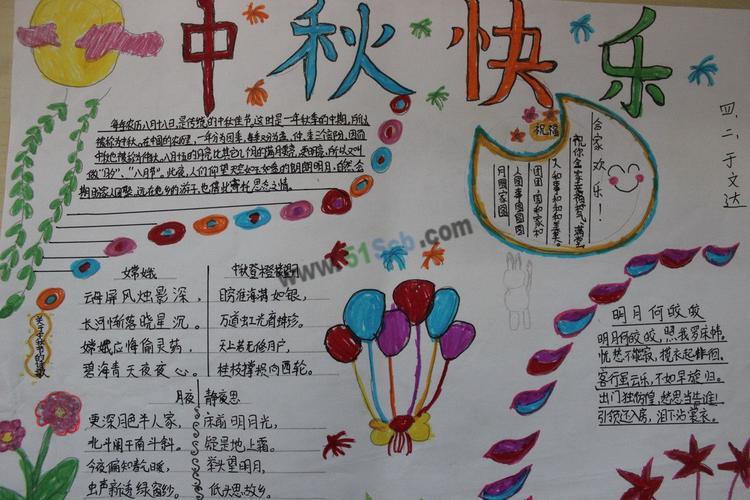 中秋快乐
四、二、于文达
每年农历八月十八日,是传统的中秋佳节。这时是一年秋季的中期,所以
被称为中秋。在中国的农历里,一年分为四季,每季又分为孟、仲、季三个部分,因而
中秋也被称为仲秋。八月十五的月亮比其它几个月的满月更圆,更明亮,所以又叫
做"月夕","八月节"。此夜,人们仰望天空如玉如盘的朗朗明月,自然会
期盼家人团聚,远在他乡的游子,也借此寄托思念之情。
祝福
合家欢乐!
祝你全家喜福气满堂
人和事和和和美美
团团圆圆和和家
人圆事圆圆圆圆
月圆家圆
www.51Scb.com
嫦娥
云母屏风烛影深,
长河渐落晓星沉。
嫦娥应悔偷灵药,
碧海青天夜夜心。
中秋登楼望月
目穷淮海满如银,
万道虹光育蚌珍。
天上若无修月户,
桂枝撑损向西轮。
关于中秋节的诗歌
月夜
更深月色半人家,
北斗阑干南斗斜。
今夜偏知春气暖,
虫声新透绿窗纱。
静夜思
床前明月光,
疑是地上霜。
举头望明月,
低头思故乡。
明月何皎皎
明月何皎皎,照我罗床帏。
忧愁不能寐,揽衣起徘徊。
客行虽云乐,不如早旋归。
出门独彷徨,愁思当告谁!
引领还入房,泪下沾裳衣。